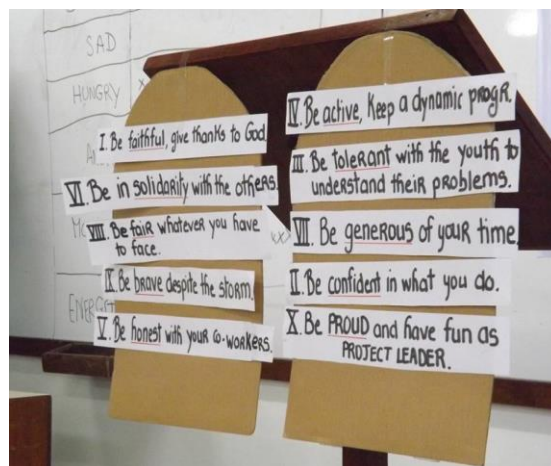 SAD
HUNGRY
I. Be faithful, give thanks to God.
VI. Be in solidarity with the others.
VIII. Be fair whatever you have
to face.
IX. Be brave despite the storm.
V. Be honest with your co-workers.
IV. Be active, keep a dynamic progr.
III. Be tolerant with the youth to
understand their problems.
VII. Be generous of your time.
II. Be confident in what you do.
X. Be PROUD and have fun as
PROJECT LEADER.